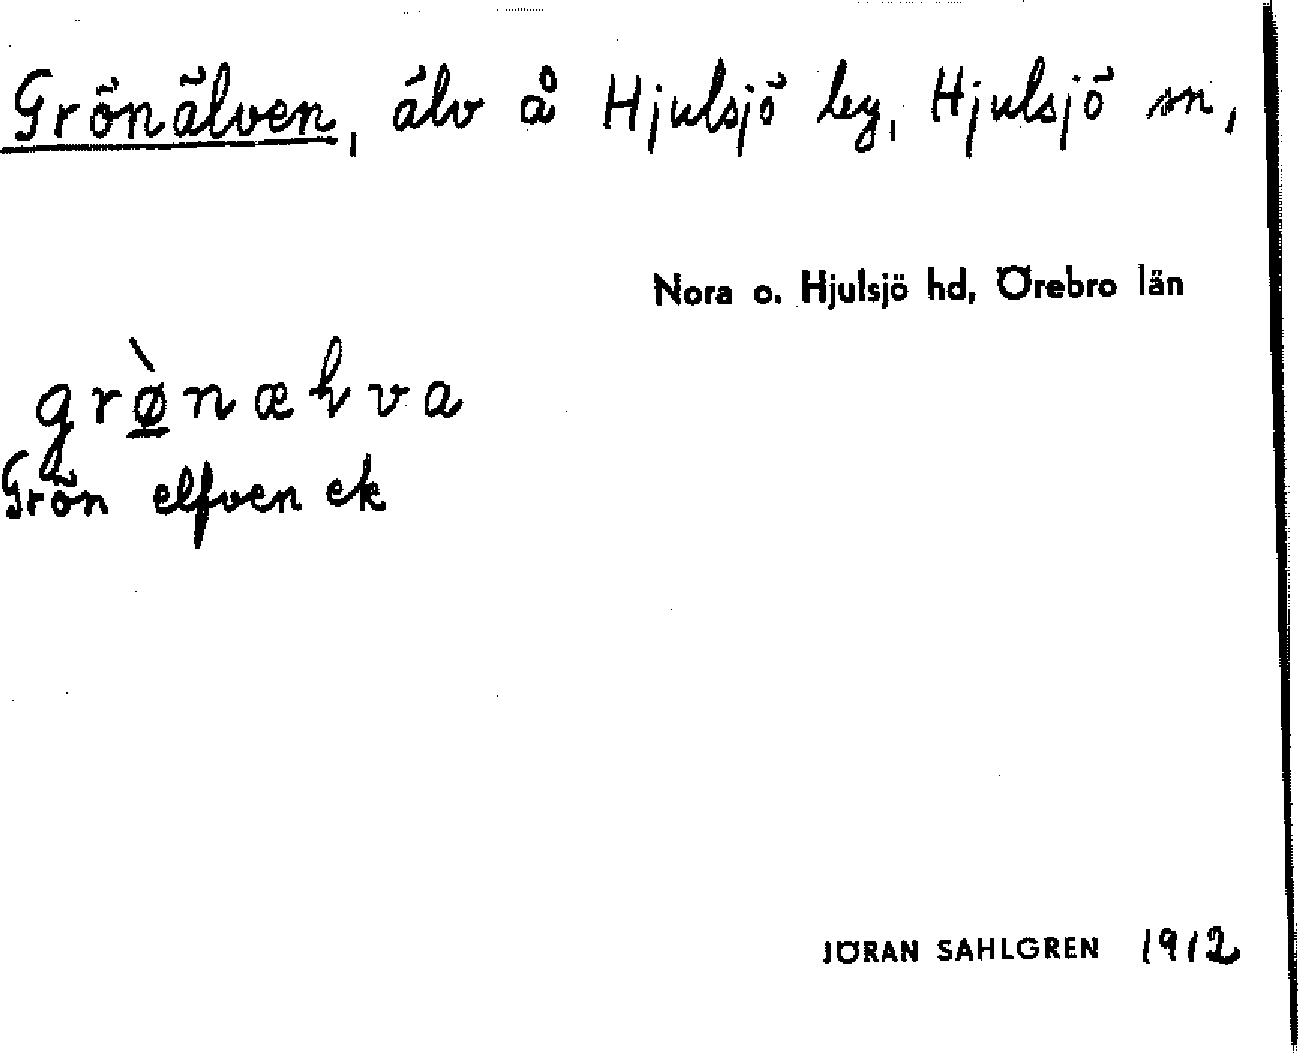 Grönälven, älv å Hjulsjö by, Hjulsjö sn,
Nora o. Hjulsjö hd, Örebro län
grø̲̀nælva
Grön elfven ek
JÖRAN SAHLGREN 1912